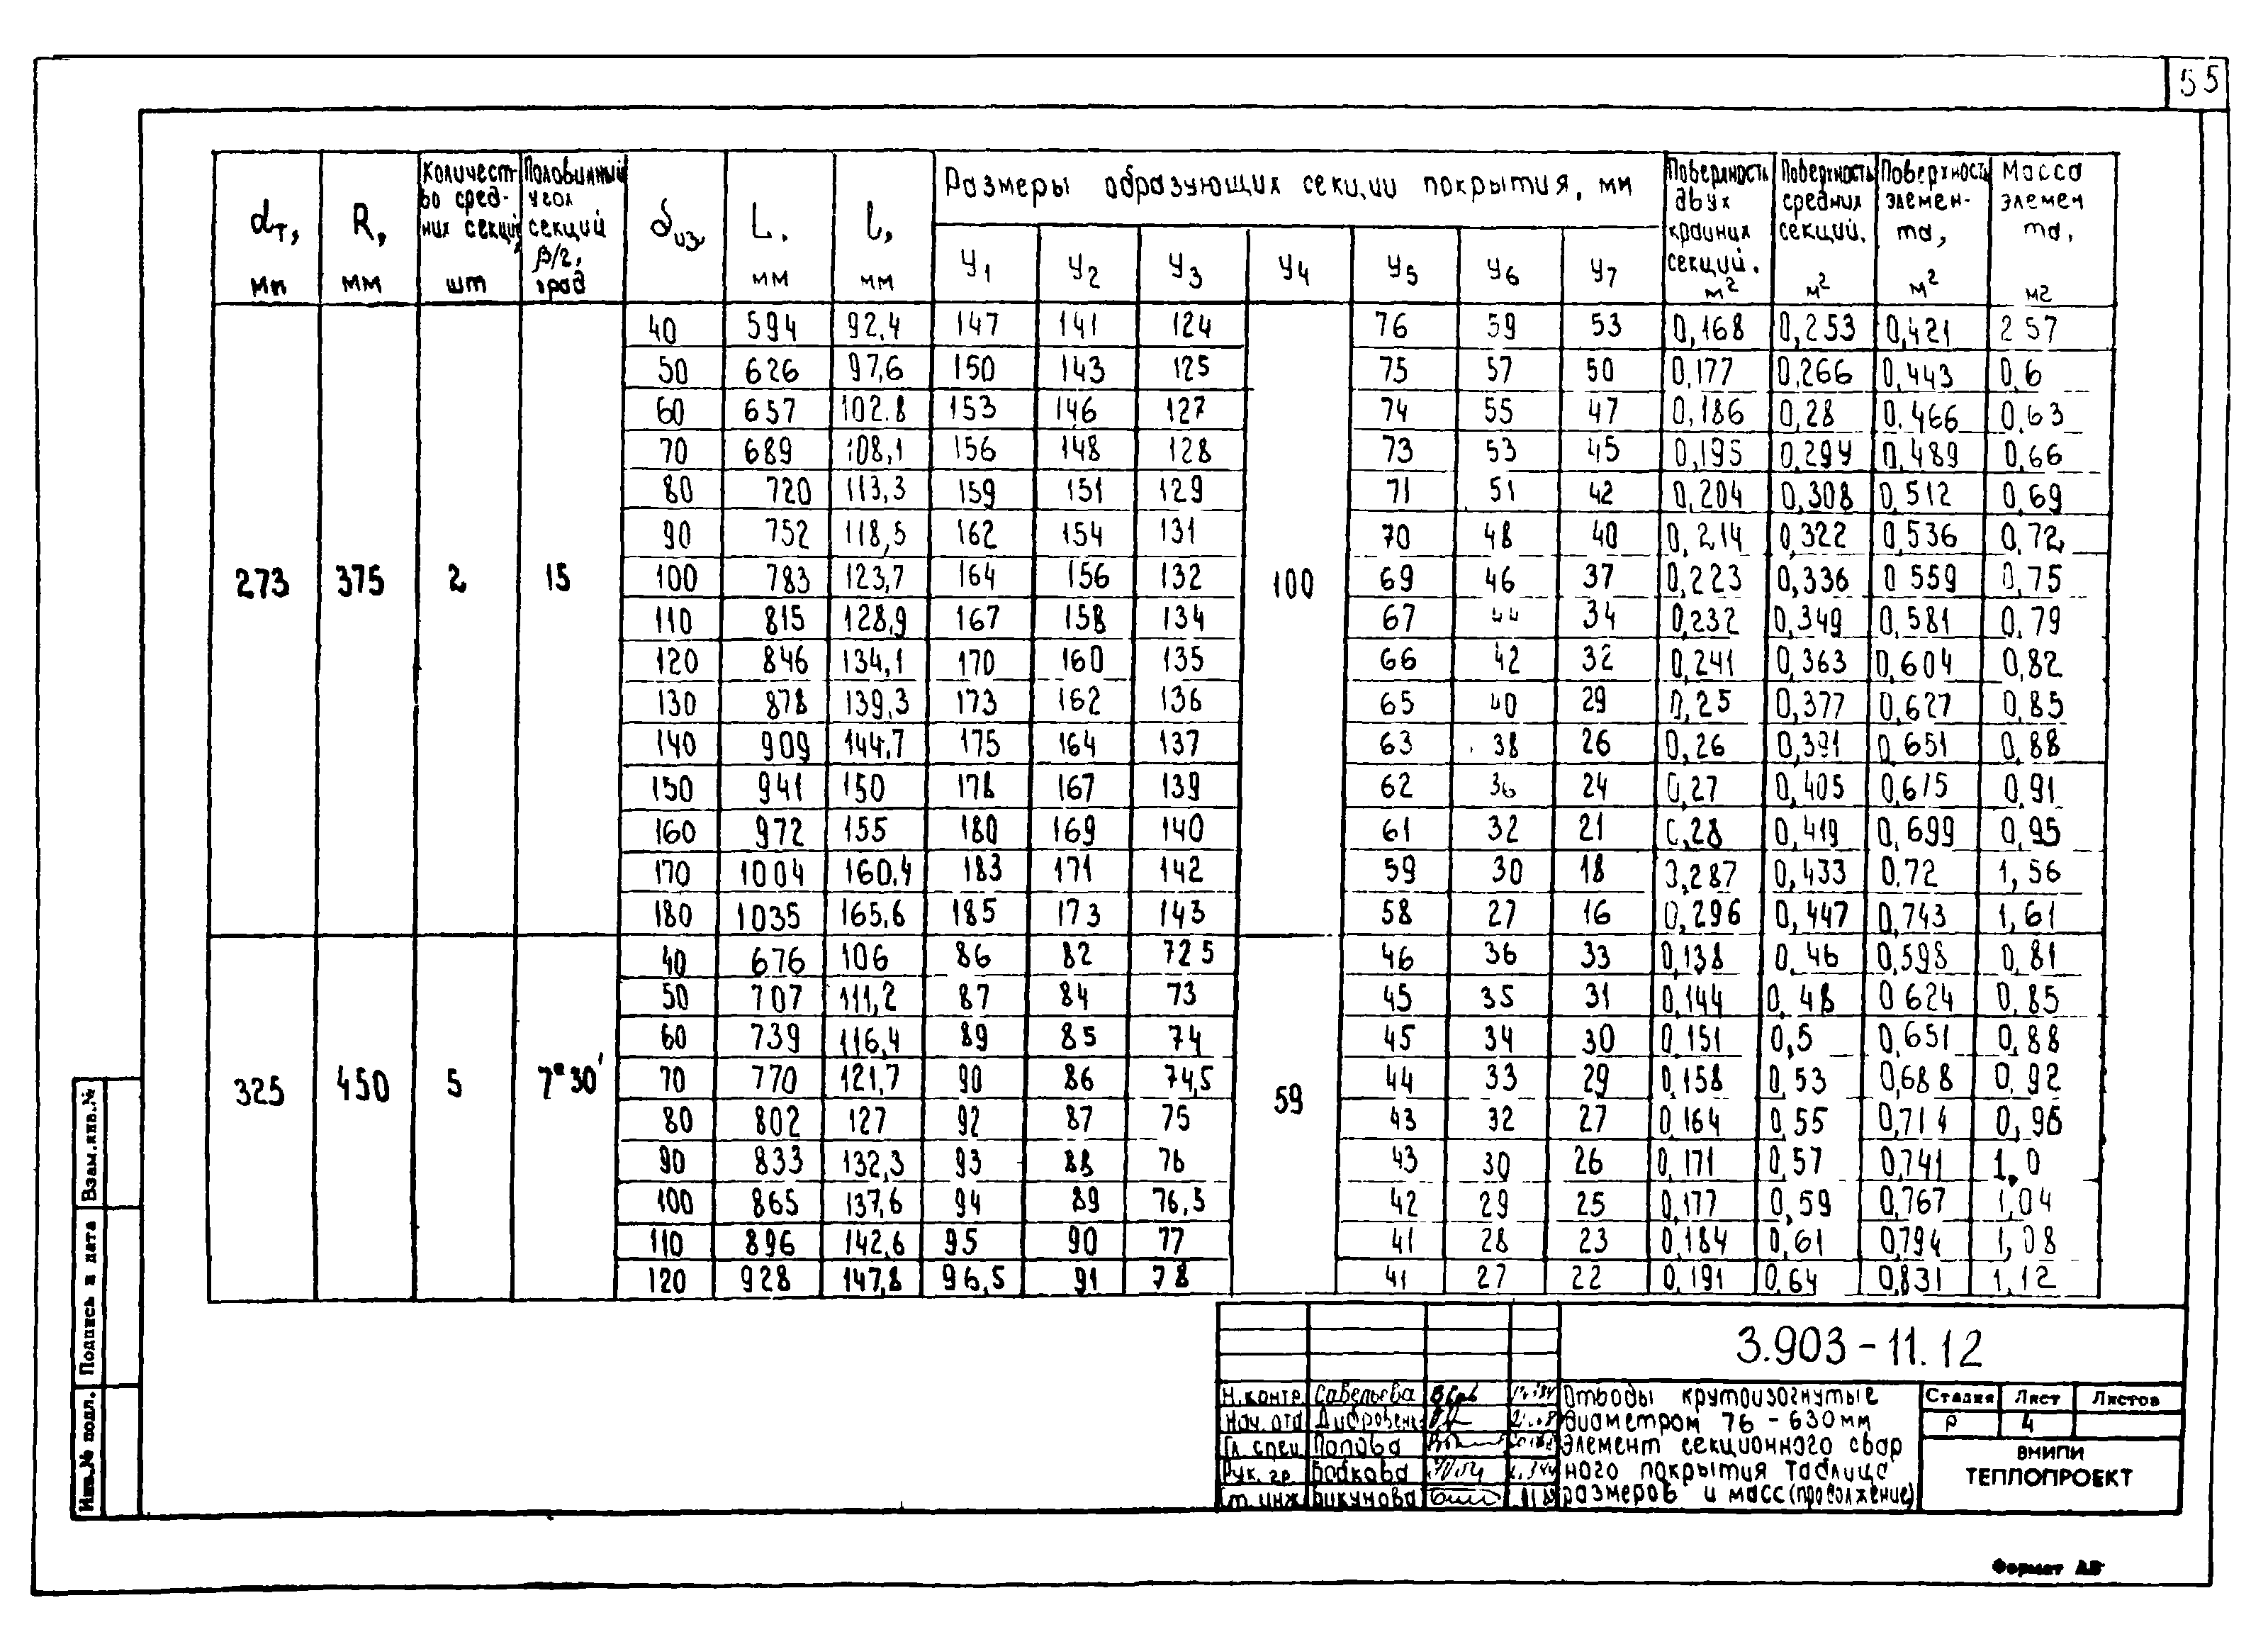 55
dт, мм R, мм Количество средних секций, шт Половинный угол секций β/2, град δиз, L, мм l, мм Размеры образующих секции покрытия, мм Поверхность двух крайних секций, м² Поверхность средних секций, м² Поверхность элемента, м² Масса элемента, кг
У1 У2 У3 У4 У5 У6 У7
40 594 92,4 147 141 124 76 59 53 0,168 0,253 0,421 257
50 626 97,6 150 143 125 75 57 50 0,177 0,266 0,443 0,6
60 657 102.8 153 146 127 74 55 47 0,186 0,28 0.466 0,63
70 689 108,1 156 148 128 73 53 45 0,195 0,294 0,489 0,66
80 720 113,3 159 151 129 71 51 42 0,204 0,308 0,512 0,69
90 752 118,5 162 154 131 70 48 40 0,214 0,322 0,536 0,72
273 375 2 15 100 783 123,7 164 156 132 100 69 46 37 0,223 0,336 0 559 0,75
110 815 128,9 167 158 134 67 44 34 0,232 0,349 0,581 0,79
120 846 134,1 170 160 135 66 42 32 0,241 0,363 0,604 0,82
130 878 139,3 173 162 136 65 40 29 0,25 0,377 0,627 0,85
140 909 144,7 175 164 137 63 38 26 0,26 0,391 0,651 0,88
150 941 150 178 167 139 62 36 24 0,27 0,405 0,615 0,91
160 972 155 180 169 140 61 32 21 0,28 0,419 0,699 0,95
170 1004 160,4 183 171 142 59 30 18 0,287 0,433 0.72 1,56
180 1035 165,6 185 173 143 58 27 16 0,296 0,447 0,743 1,61
40 676 106 86 82 72 5 46 36 33 0,138 0,46 0,598 0,81
50 707 111,2 87 84 73 45 35 31 0,144 0,48 0 624 0,85
60 739 116,4 89 85 74 45 34 30 0,151 0,5 0,651 0,88
325 450 5 7°30' 70 770 121,7 90 86 74,5 59 44 33 29 0,158 0,53 0,688 0,92
80 802 127 92 87 75 43 32 27 0,164 0,55 0,714 0,96
90 833 132,3 93 88 76 43 30 26 0,171 0,57 0,741 1,0
100 865 137,6 94 89 76,5 42 29 25 0,177 0,59 0,767 1,04
110 896 142,6 95 90 77 41 28 23 0,184 0,61 0,794 1,08
120 928 147,8 96,5 91 78 41 27 22 0,191 0,64 0,831 1,12
Взам.инв.№
Подпись и дата
Инв.№ подл.
3.903-11.12
Н.контр. Савельева
Нач. отд
Гл. спец. Попова
Рук. гр. Бобкова
Ст. инж. Бикунова
Отводы крутоизогнутые
диаметром 76-630мм
элемент секционного свар
ного покрытия Таблица
размеров и масс (продолжение)
Стадия Лист Листов
Р 4
ВНИПИ
ТЕПЛОПРОЕКТ
Формат